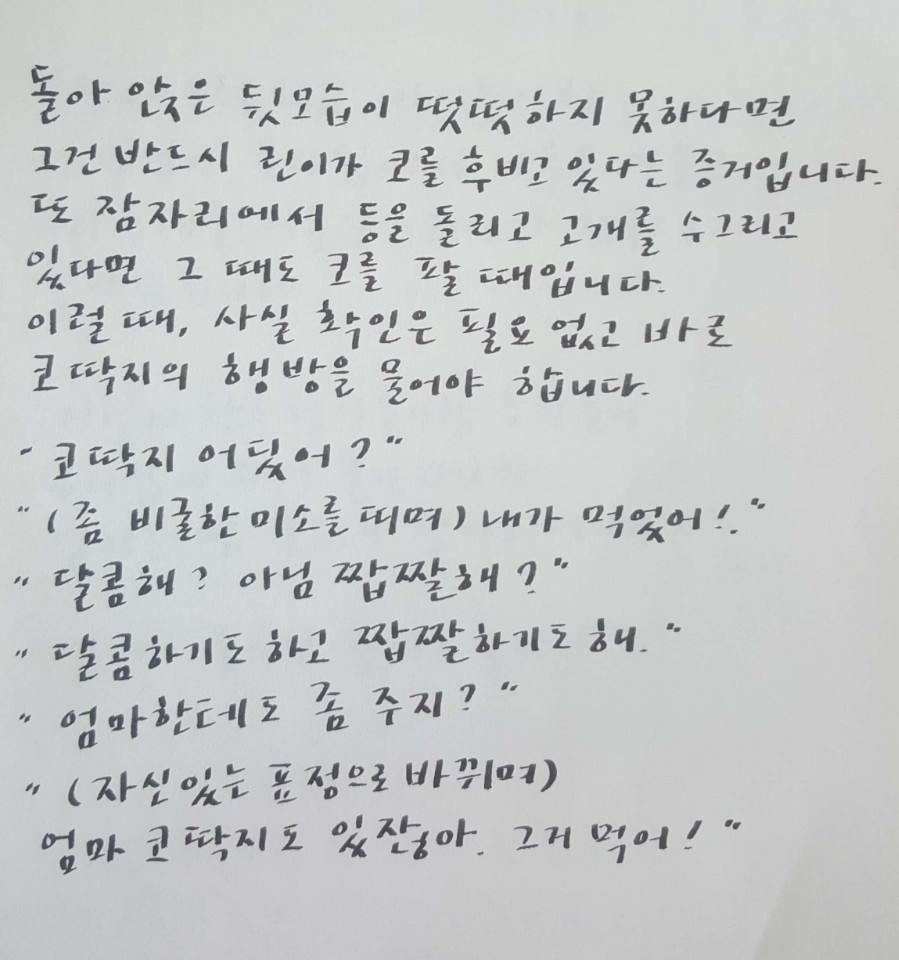 돌아 앉은 뒷모습이 떳떳하지 못하다면
그건 반드시 린이가 코를 후비고 있다는 증거입니다.
또 잠자리에서 등을 돌리고 고개를 수그리고
있다면 그 때도 코를 팔 때입니다.
이럴 때, 사실 확인은 필요 없고 바로
코딱지의 행방을 물어야 합니다.
"코딱지 어딨어?"
"(좀 비굴한 미소를 띠며) 내가 먹었어!."
"달콤해? 아님 짭짤해?"
"달콤하기도 하고 짭짤하기도 해."
"엄마한데도 좀 주지?"
"(자신있는 표정으로 바뀌며)
엄마 코딱지도 있잖아. 그거 먹어!"